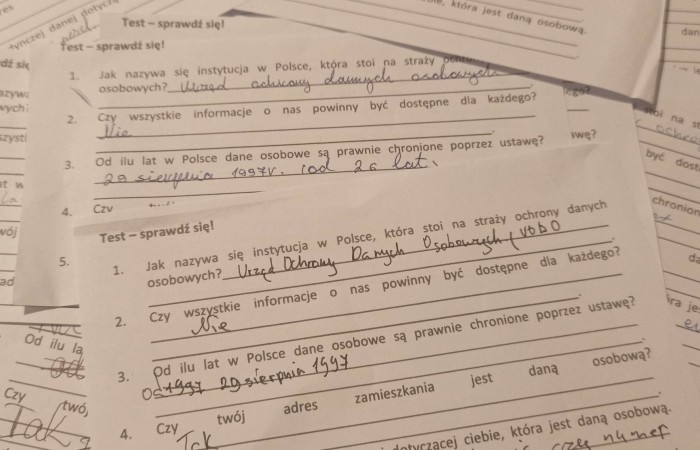 która jest daną osobową.
Test – sprawdź się!
Test – sprawdź się!
1. Jak nazywa się instytucja w Polsce, która stoi na straży
osobowych? Urząd ochrony danych osobowych
2. Czy wszystkie informacje o nas powinny być dostępne dla każdego?
Nie
3. Od ilu lat w Polsce dane osobowe są prawnie chronione poprzez ustawę?
29 sierpnia 1997r. (od 26 lat.
4. Czy
5.
Test – sprawdź się!
1. Jak nazywa się instytucja w Polsce, która stoi na straży ochrony danych
osobowych? Urząd Ochrony Danych Osobowych (UODO
2. Czy wszystkie informacje o nas powinny być dostępne dla każdego?
Nie
3. Od ilu lat w Polsce dane osobowe są prawnie chronione poprzez ustawę?
Od 1997 29 sierpnia 1997
4. Czy twój adres zamieszkania jest daną osobową?
Tak
dotyczącej ciebie, która jest daną osobową.
czy numer
Od ilu la
Czy twój
Tak
być dost
chronion